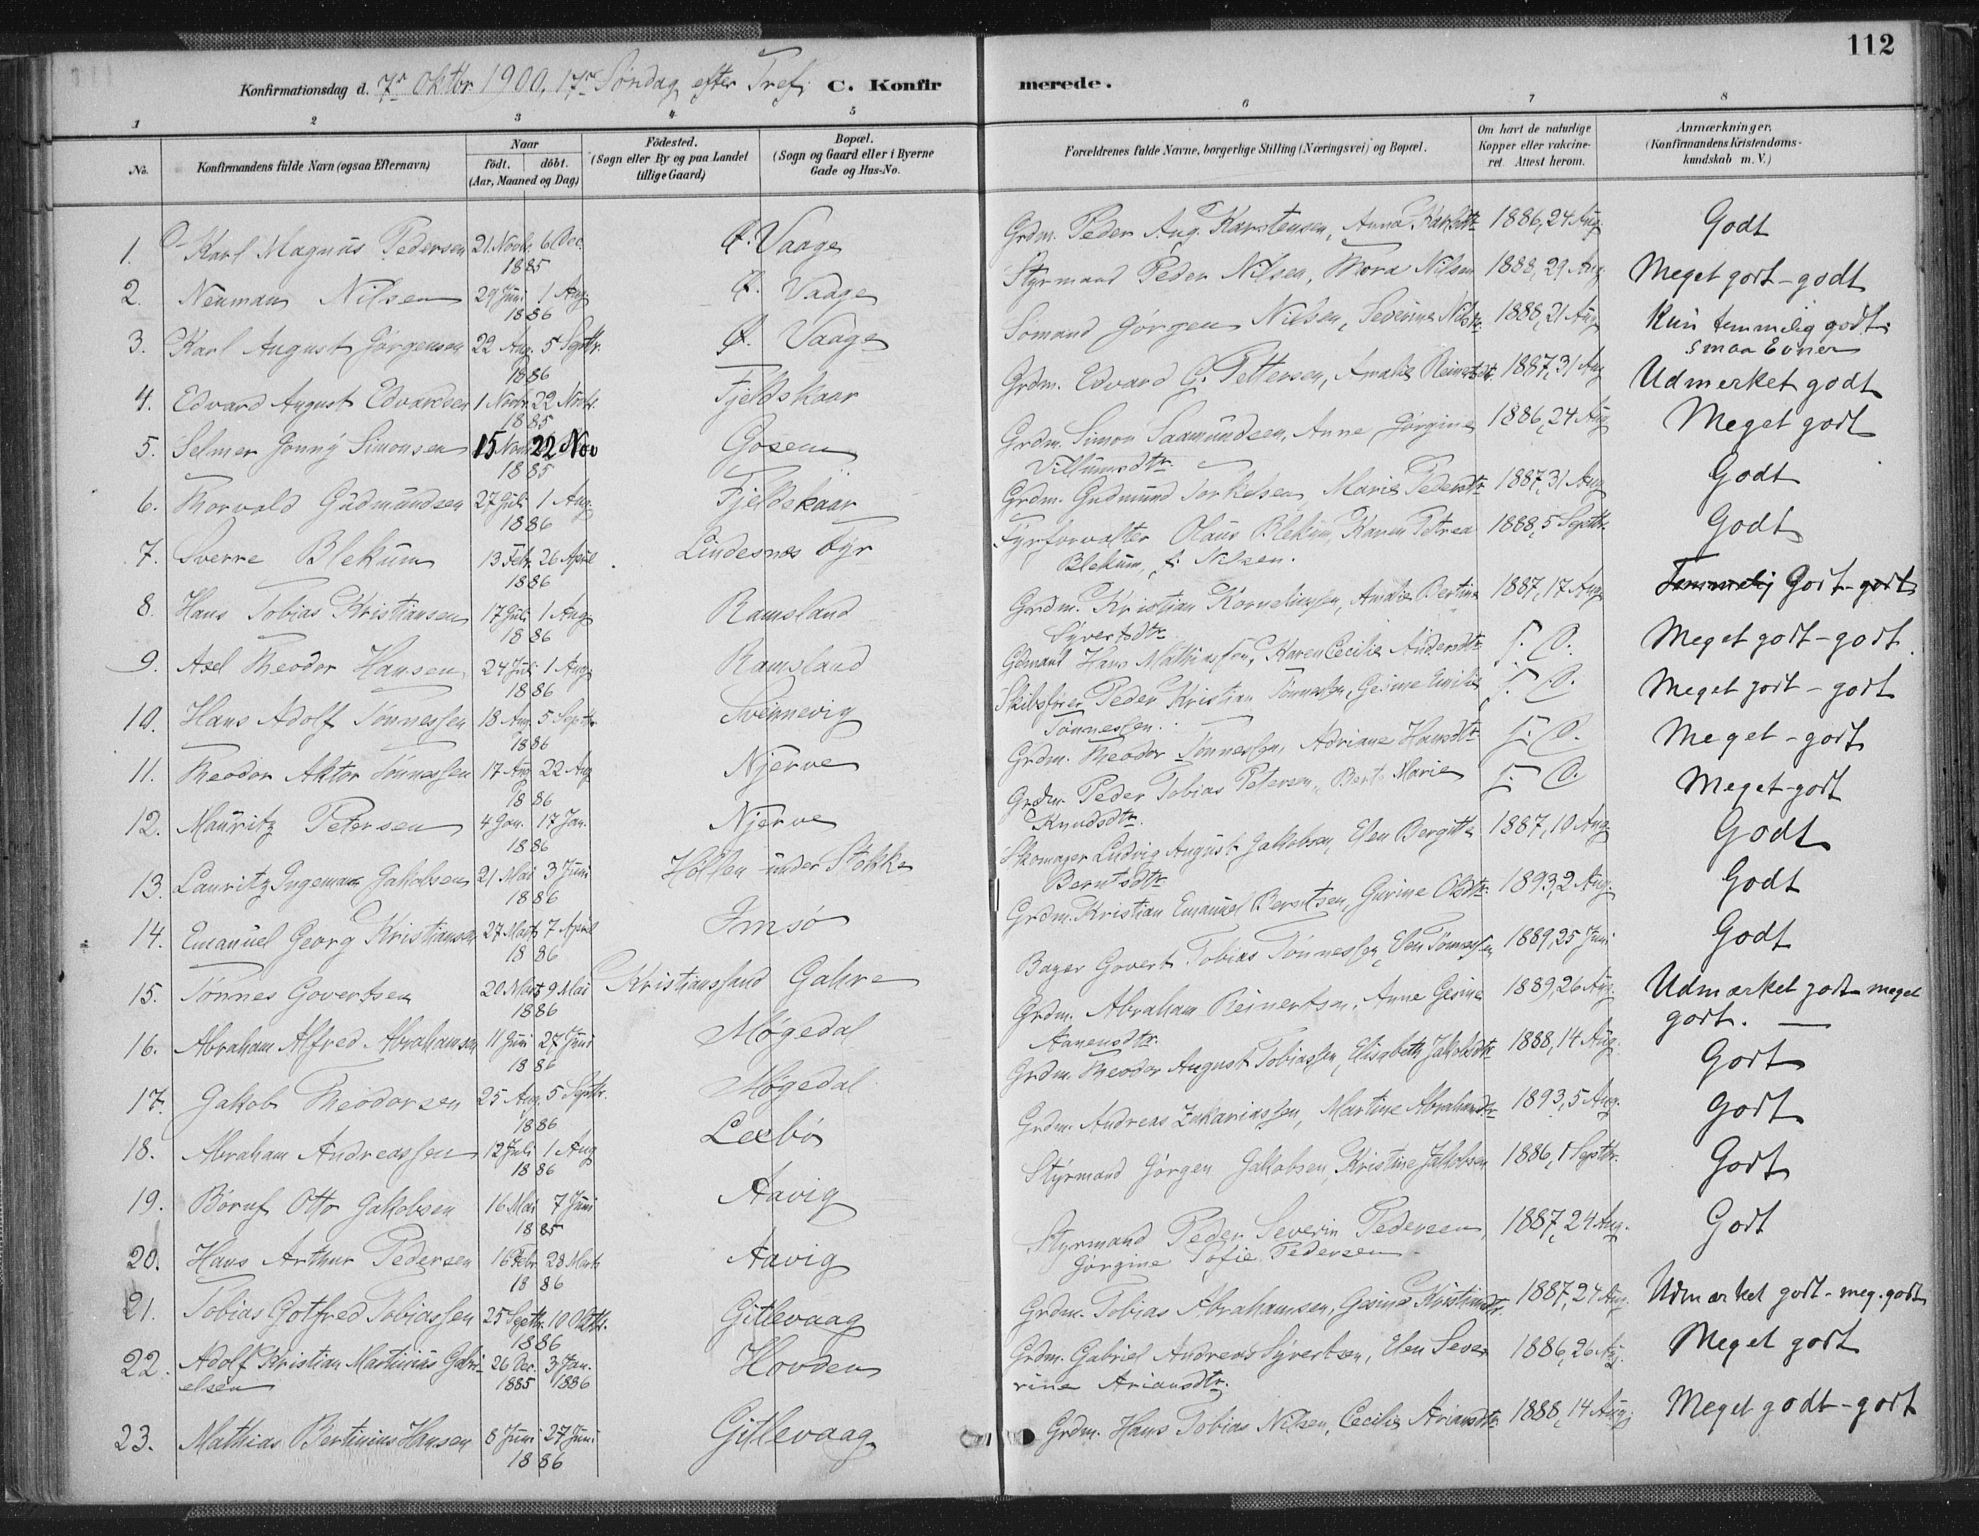 112
Konfirmationsdag d. 7de Oktbr. 1900, 17de Søndag efter Tref. C. Konfirmerede.
1 2 3 4 5 6 7 8
No. Konfirmandens fulde Navn (ogsaa Efternavn) Naar født. døbt. (Aar, Maaned og Dag) Fødested. (Sogn eller By og paa Landet tillige Gaard) Bopæl. (Sogn og Gaard eller i Byerne Gade og Hus-No. Forældrenes fulde Navne, borgerlige Stilling (Næringsvei) og Bopæl. Om havt de naturlige Kopper eller vakcineret. Attest herom. Anmærkninger. (Konfirmandens Kristendomskundskab m. V.)
1. Karl Magnus Pedersen 21 Novbr. 6 Dec. 1885 Ø. Vaage Grdm. Peder Aug. Karstensen, Anna 1886, 24 Aug. Godt
2. Neuman Nilsen 29 Juni 1 Aug 1886 Ø. Vaage Styrmand Peder Nilsen, Thora Nilsen 1888, 29 Aug. Meget godt - godt
3. Karl August Jørgensen 22 Aug. 5 Septbr. 1886 Ø. Vaage Sømand Jørgen Nilsen, Severine Nilsdtr. 1888, 21 Aug Kun temmelig godt.
smaa Evner
4. Edvard August Edvardsen 1 Novbr. 22 Novbr. 1885 Fjeldskaar Grdm. Edvard G. Pettersen, Amalie Reinertsdtr. 1887, 31 Aug Udmerket godt
5. Selmer Jonny Simonsen 15 Novbr 22 Nov 1885 Gosen Grdm. Simon Saamundsen, Anne Jørgine 1886, 24 Aug Meget godt
Villumsdtr.
6. Thorvald Gudmundsen 27 Juli 1 Aug. 1886 Fjeldskaar Grdm. Gudmund Torkelsen, Marie Pedersdtr. 1887, 31 Aug Godt
7. Sverre Blekum 13 Febr. 26 April 1886 Lindesnes Fyr Fyrforvalter Olaus Blekum, Karen Petrea 1888, 5 Septbr. Godt
Blekum, f. Nilsen.
8. Hans Tobias Kristiansen 17 Juli 1 Aug 1886 Ramsland Grdm. Kristian Korneliussen, Amalie Bertine 1887, 17 Aug Temmelig Godt - godt
Syvertsdtr.
9. Axel Theodor Hansen 24 Juli 1 Aug 1886 Ramsland Gdmand Hans Mathiassen, Karen Cecilie Andersdtr. S. D. Meget godt - godt
10. Hans Adolf Tønnessen 18 Aug. 5 Septbr. 1886 Svennevig Skibsfører Peder Kristian Tønnessen, Gesine Emilie S. D. Meget godt - godt
Tønnessen.
11. Theodor Aktor Tønnessen 17 Aug 22 Aug 1886 Njerve Grdm. Theodor Tønnessen, Adriane Hansdtr. S. D. Meget - godt
12. Mauritz Petersen 4 Jan. 17 Jan. 1886 Njerve Grdm. Peder Tobias Petersen, Berte Marie S. D. Meget - godt
Knudsdtr.
13. Lauritz Ingeman Jakobsen 21 Mai 3 Juni 1886 Hollen under Stokke Skomager Ludvig August Jakobsen, Elen Bergitte 1887, 10 Aug Godt
Berntsdtr.
14. Emanuel Georg Kristiansen 27 Marts 7 April 1886 Imsø Grdm. Kristian Emanuel Berntsen, Gurine Olsdtr. 1893, 2 Aug. Godt
15. Tønnes Govertsen 20 Marts 9 Mai 1886 Kristianssand Gahre Bager Govert Tobias Tønnessen, Elen Tønnessen 1889, 25 Juni Godt
16. Abraham Alfred Abrahamsen 11 Juni 27 Juni 1886 Møgedal Grdm. Abraham Reinertsen, Anne Gesine 1889, 26 Aug. Udmærket godt - meget
Aanensdtr. godt.
17. Jakob Theodorsen 25 Aug. 5 Septbr. 1886 Møgedal Grdm. Theodor August Tobiassen, Elisabeth Jakobsdtr 1888, 14 Aug. Godt
18. Abraham Andreassen 12 Juli 1 Aug 1886 Leebø Grdm. Andreas Zakariassen, Martine Abrahamsdtr 1893, 5 Aug. Godt
19. Børuf Otto Jakobsen 16 Mai 7 Juni 1885 Aavig Styrmand Jørgen Jakobsen, Kristine Jakobsen 1886, 1 Septbr. Godt
20. Hans Arthur Pedersen 16 Febr 28 Marts 1886 Aavig Styrmand Peder Severin Pedersen, 1887, 24 Aug. Godt
Jørgine Tofie Pedersen
21. Tobias Gotfred Tobiassen 25 Septbr. 10 Oktbr. 1886 Gitlevaag Grdm. Tobias Abrahamsen, Gesine Kristiansdtr. 1887, 24 Aug. Udmærket godt - meg. godt
22. Adolf Kristian Martinius Gabrielsen 26 Dec. 1885 3 Jan. 1886 Hovden Grdm. Gabriel Andreas Syvertsen, Elen Severine Ariansdtr. 1886, 26 Aug. Meget godt
23. Mathias Bertinius Hansen 8 Juni 27 Juni 1886 Gitlevaag Grdm. Hans Tobias Nilsen, Cecilie Ariansdtr 1888, 14 Aug. Meget godt - godt